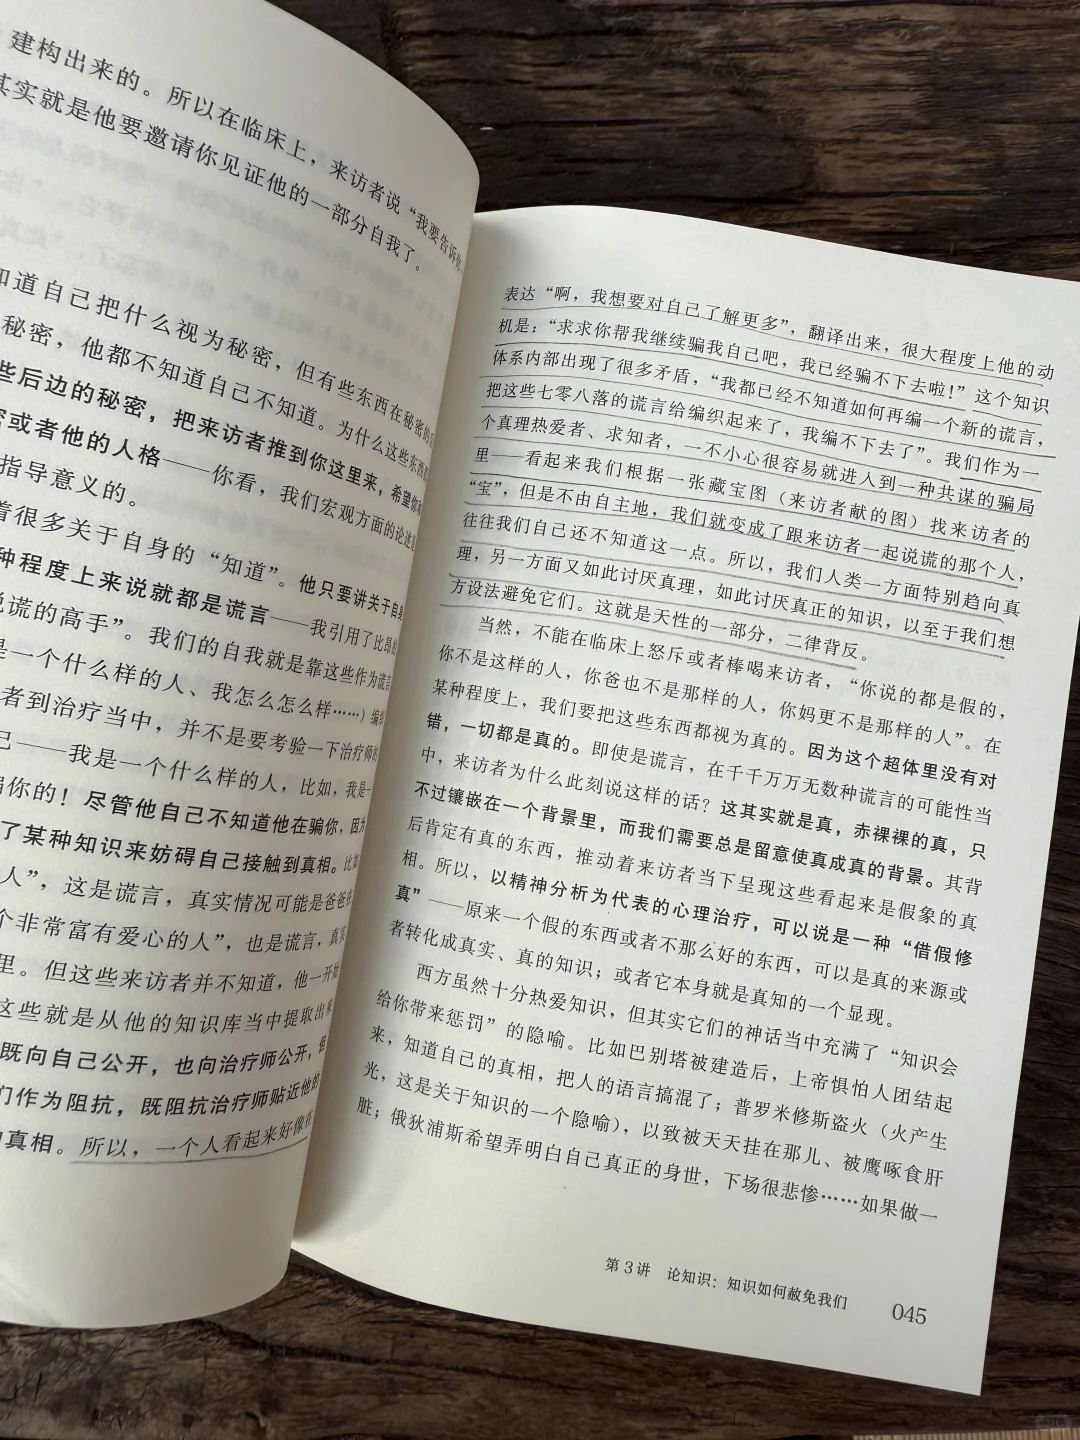 建构出来的。所以在临床上，来访者说“我要告诉你
其实就是他要邀请你见证他的一部分自我了。
知道自己把什么视为秘密，但有些东西在秘密的后
秘密，他都不知道自己不知道。为什么这些东西
些后边的秘密，把来访者推到你这里来，希望你
密或者他的人格——你看，我们宏观方面的论述是
指导意义的。
着很多关于自身的“知道”。他只要讲关于自身
种程度上来说就都是谎言——我引用了比昂的
说谎的高手”。我们的自我就是靠这些作为谎言
是一个什么样的人、我怎么怎么样……）编织
者到治疗当中，并不是要考验一下治疗师的
己——我是一个什么样的人，比如，我是一
骗你的！尽管他自己不知道他在骗你，因为
了某种知识来妨碍自己接触到真相。比如
人”，这是谎言，真实情况可能是爸爸在
个非常富有爱心的人”，也是谎言，真实
里。但这些来访者并不知道，他一开始
这些就是从他的知识库当中提取出来
既向自己公开，也向治疗师公开，但
们作为阻抗，既阻抗治疗师贴近他的
的真相。所以，一个人看起来好像在
表达“啊，我想要对自己了解更多”，翻译出来，很大程度上他的动
机是：“求求你帮我继续骗我自己吧，我已经骗不下去啦！”这个知识
体系内部出现了很多矛盾，“我都已经不知道如何再编一个新的谎言，
把这些七零八落的谎言给编织起来了，我编不下去了”。我们作为一
个真理热爱者、求知者，一不小心很容易就进入到一种共谋的骗局
里——看起来我们根据一张藏宝图（来访者献的图）找来访者的
“宝”，但是不由自主地，我们就变成了跟来访者一起说谎的那个人，
往往我们自己还不知道这一点。所以，我们人类一方面特别趋向真
理，另一方面又如此讨厌真理，如此讨厌真正的知识，以至于我们想
方设法避免它们。这就是天性的一部分，二律背反。
当然，不能在临床上怒斥或者棒喝来访者，“你说的都是假的，
你不是这样的人，你爸也不是那样的人，你妈更不是那样的人”。在
某种程度上，我们要把这些东西都视为真的。因为这个超体里没有对
错，一切都是真的。即使是谎言，在千千万万无数种谎言的可能性当
中，来访者为什么此刻说这样的话？这其实就是真，赤裸裸的真，只
不过镶嵌在一个背景里，而我们需要总是留意使真成真的背景。其背
后肯定有真的东西，推动着来访者当下呈现这些看起来是假象的真
相。所以，以精神分析为代表的心理治疗，可以说是一种“借假修
真”——原来一个假的东西或者不那么好的东西，可以是真的来源或
者转化成真实、真的知识；或者它本身就是真知的一个显现。
西方虽然十分热爱知识，但其实它们的神话当中充满了“知识会
给你带来惩罚”的隐喻。比如巴别塔被建造后，上帝惧怕人团结起
来，知道自己的真相，把人的语言搞混了；普罗米修斯盗火（火产生
光，这是关于知识的一个隐喻），以致被天天挂在那儿、被鹰啄食肝
脏；俄狄浦斯希望弄明白自己真正的身世，下场很悲惨……如果做一
第3讲 论知识：知识如何赦免我们 045